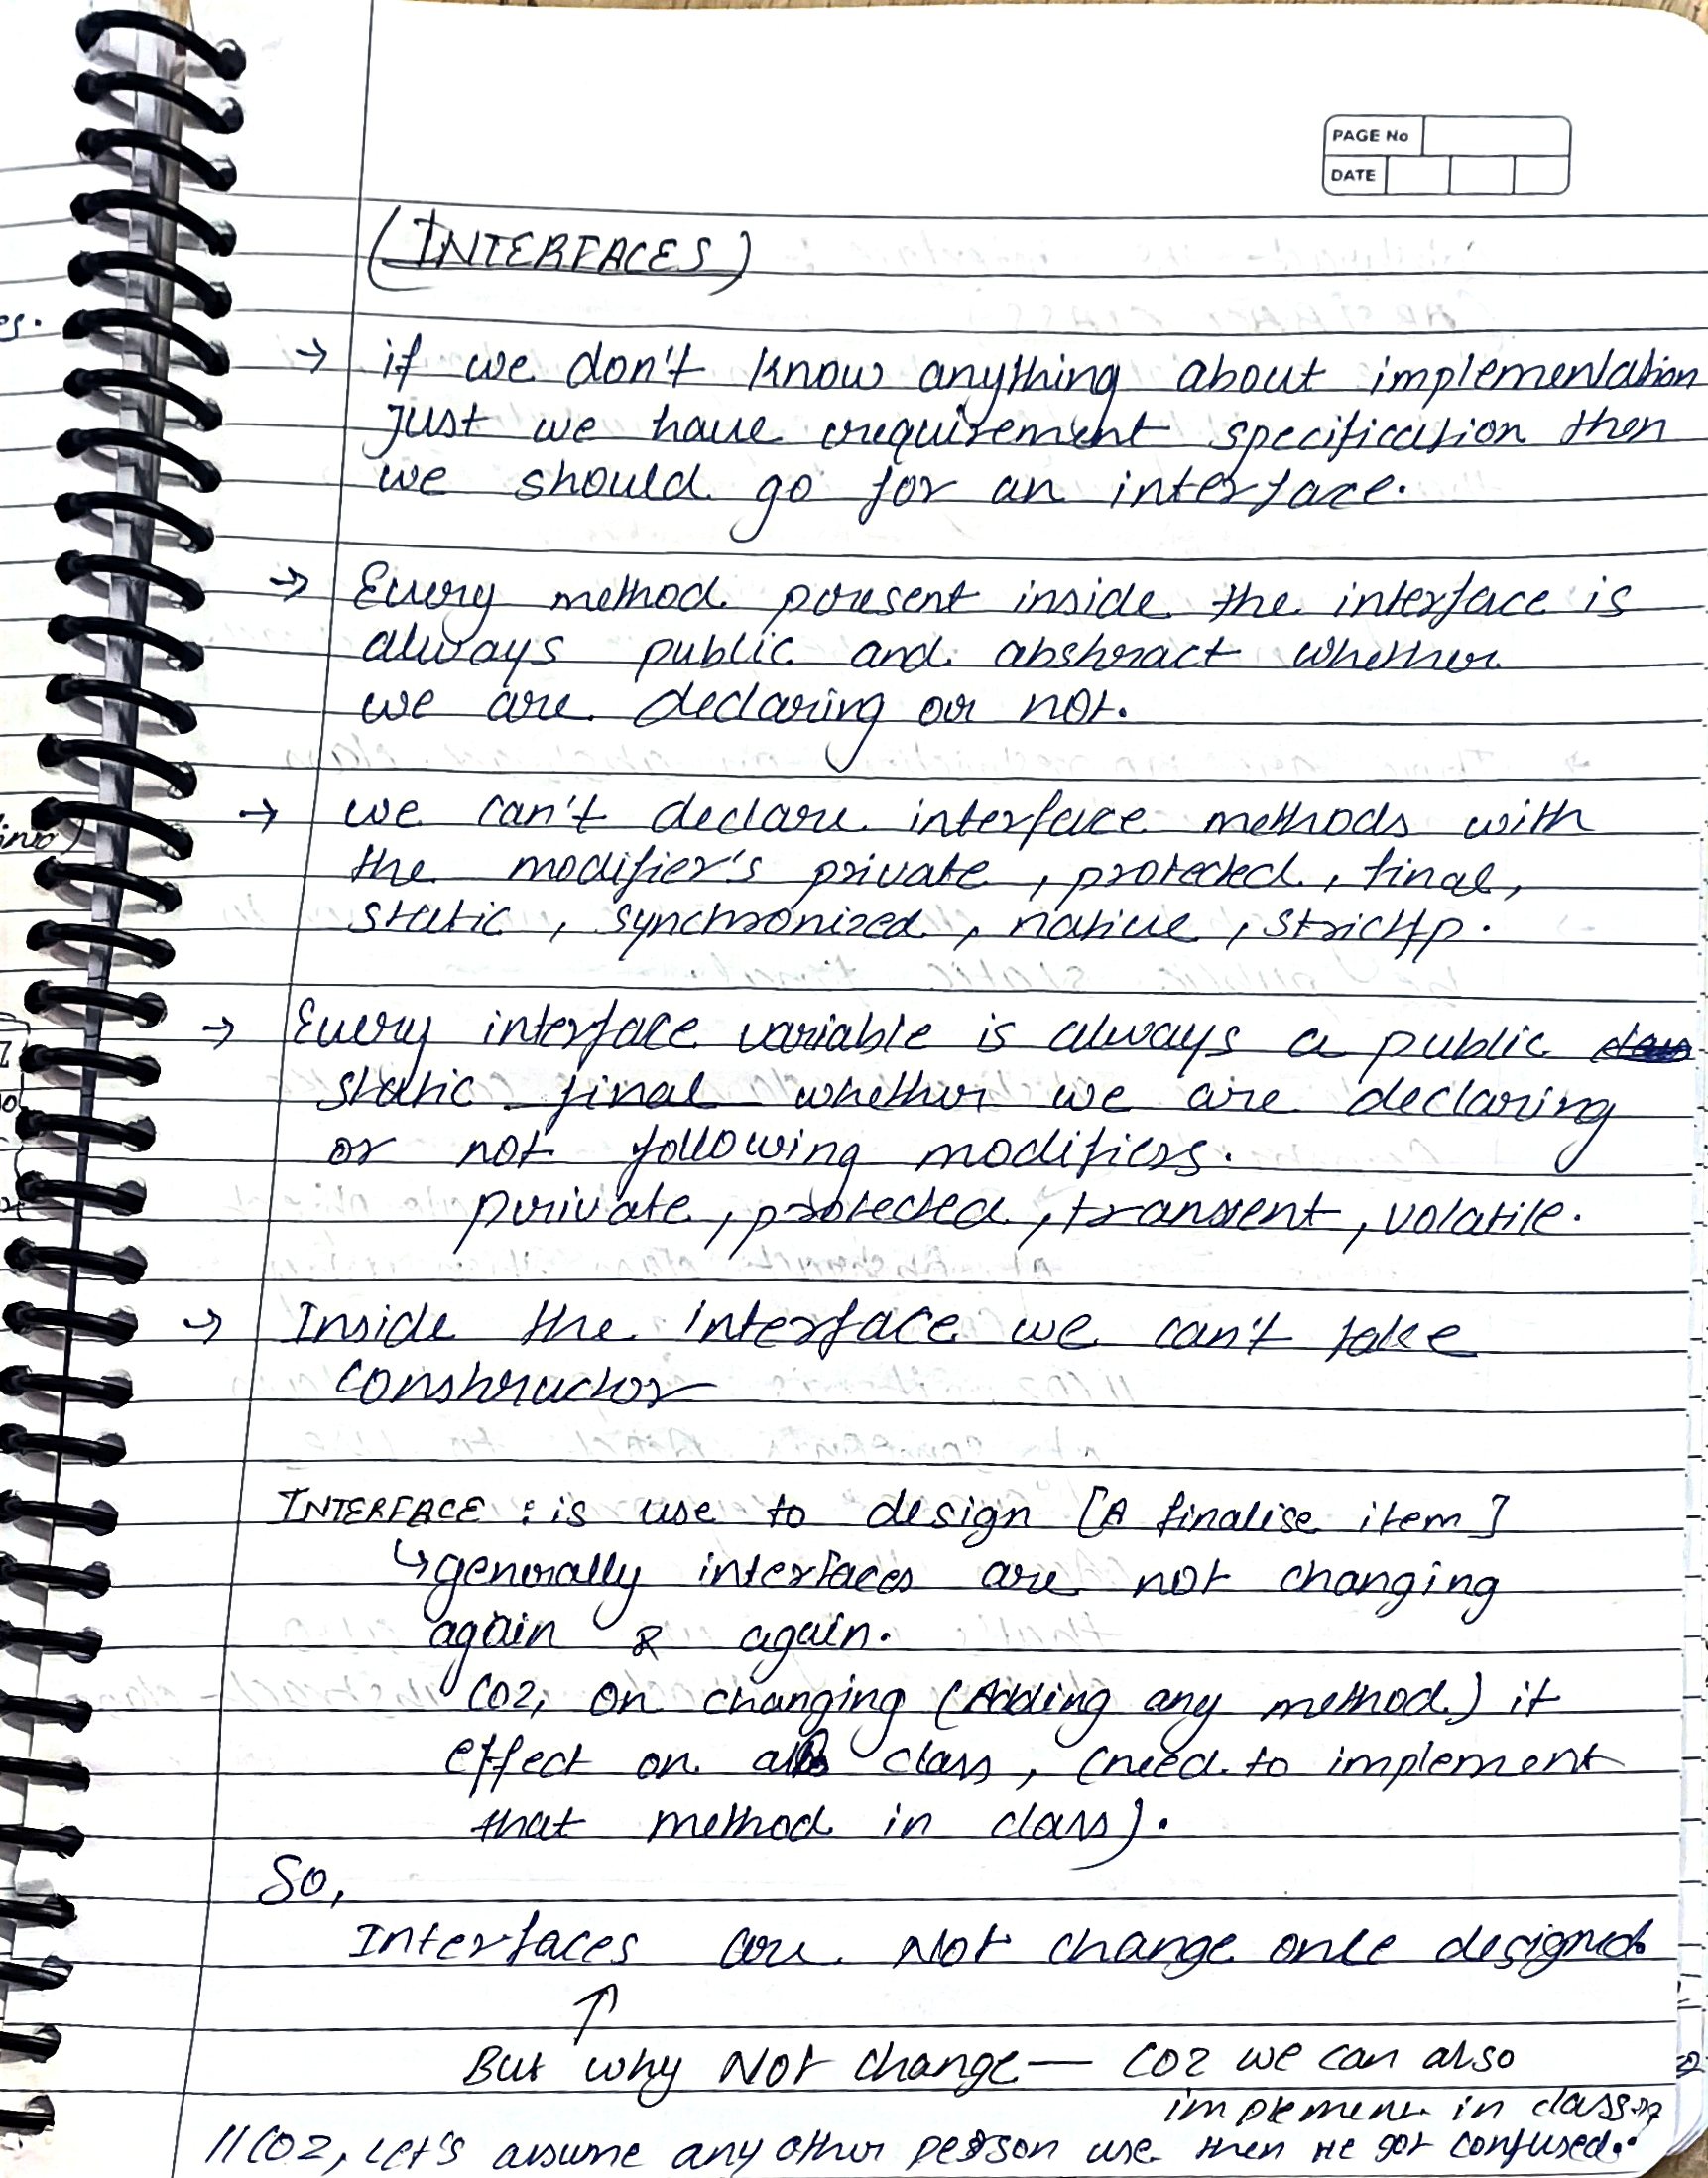 PAGE No
DATE
(INTERFACES)
→ if we don't know anything about implementation
Just we have requirement specification then
we should go for an interface.
→ Every method present inside the interface is
always public and abstract whether
we are declaring or not.
→ we can't declare interface methods with
the modifier's private, protected, final,
static, synchronized, native, strictfp.
→ Every interface variable is always a public
static final whether we are declaring
or not following modifiers.
private, protected, transient, volatile.
→ Inside the interface we can't take
constructor
INTERFACE : is use to design [A finalise item]
↳ generally interfaces are not changing
again & again.
COZ, on changing (Adding any method) it
effect on all class, (need to implement
that method in class).
So,
Interfaces are Not change once designed.
↑
But why Not change — COZ we can also
implement in class
//COZ, Let's assume any other person use then He got confused..